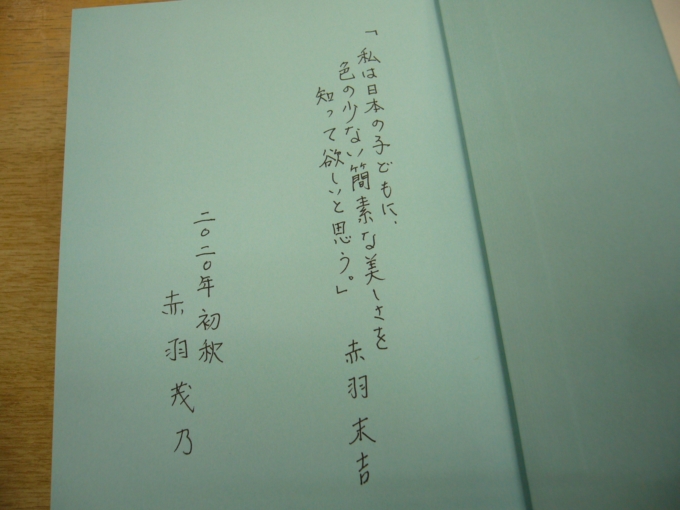 「私は日本の子どもに、
色の少ない簡素な美しさを
知って欲しいと思う。」
赤羽末吉
二〇二〇年初秋
赤羽茂乃